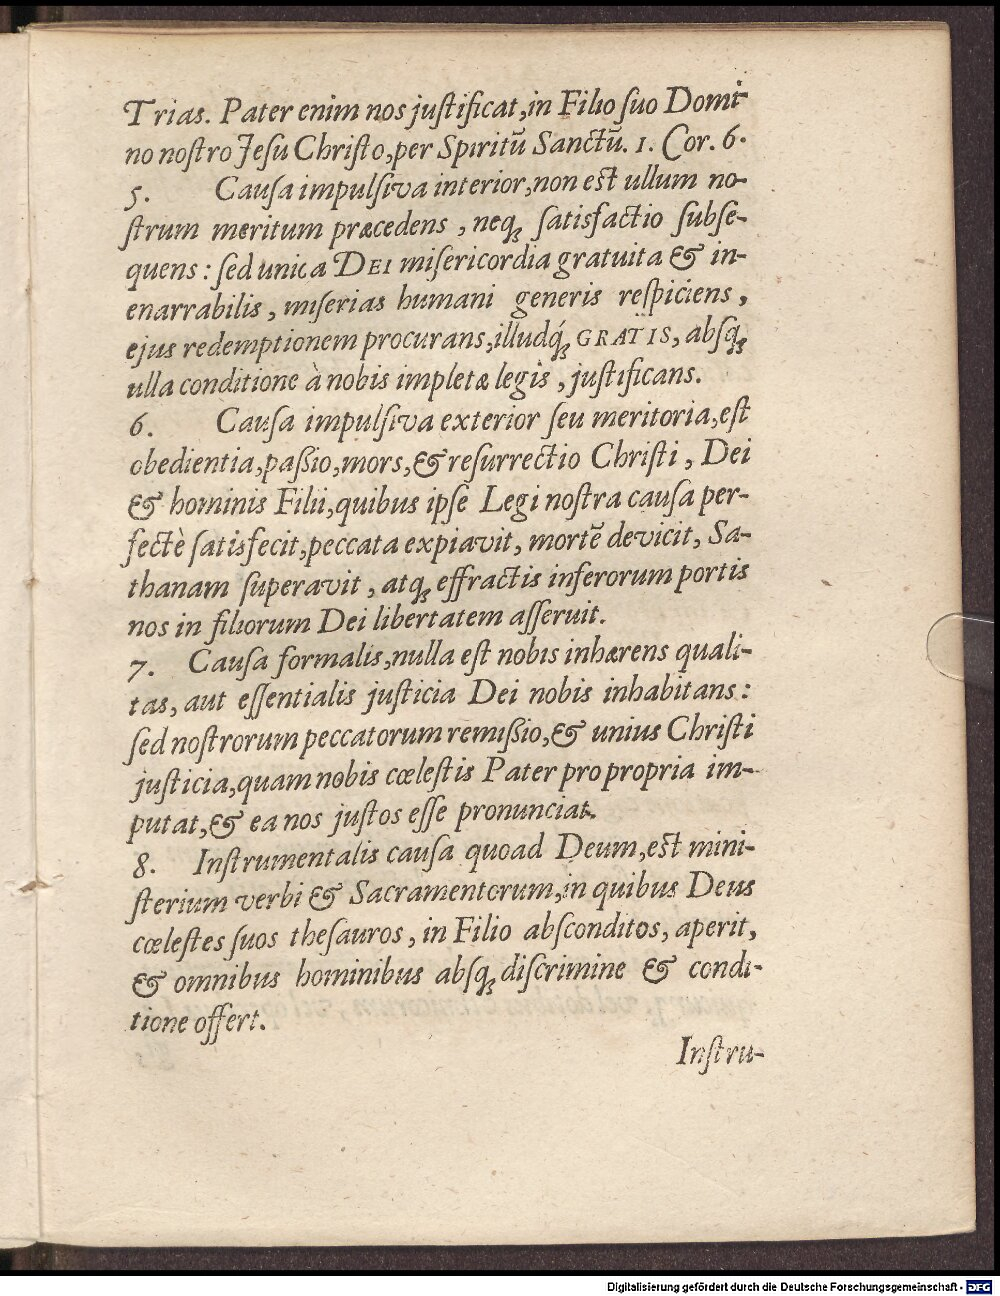 Trias. Pater enim nos justificat, in Filio suo Domi
no nostro Jesu Christo, per Spiritũ Sanctũ. 1. Cor. 6.
5. Causa impulsiva interior, non est ullum no-
strum meritum præcedens, neq; satisfactio subse-
quens: sed unica DEI misericordia gratuita & in-
enarrabilis, miserias humani generis respiciens,
ejus redemptionem procurans, illudq́; GRATIS, absq;
ulla conditione à nobis impletæ legis, justificans.
6. Causa impulsiva exterior seu meritoria, est
obedientia, passio, mors, & resurrectio Christi, Dei
& hominis Filii, quibus ipse Legi nostra causa per-
fectè satisfecit, peccata expiavit, mortẽ devicit, Sa-
thanam superavit, atq; effractis inferorum portis
nos in filiorum Dei libertatem asseruit.
7. Causa formalis, nulla est nobis inhærens quali-
tas, aut essentialis justicia Dei nobis inhabitans:
sed nostrorum peccatorum remissio, & unius Christi
justicia, quam nobis cœlestis Pater pro propria im-
putat, & ea nos justos esse pronunciat.
8. Instrumentalis causa quoad Deum, est mini-
sterium verbi & Sacramentorum, in quibus Deus
cœlestes suos thesauros, in Filio absconditos, aperit,
& omnibus hominibus absq; discrimine & condi-
tione offert.
Instru-
Digitalisierung gefördert durch die Deutsche Forschungsgemeinschaft - DFG